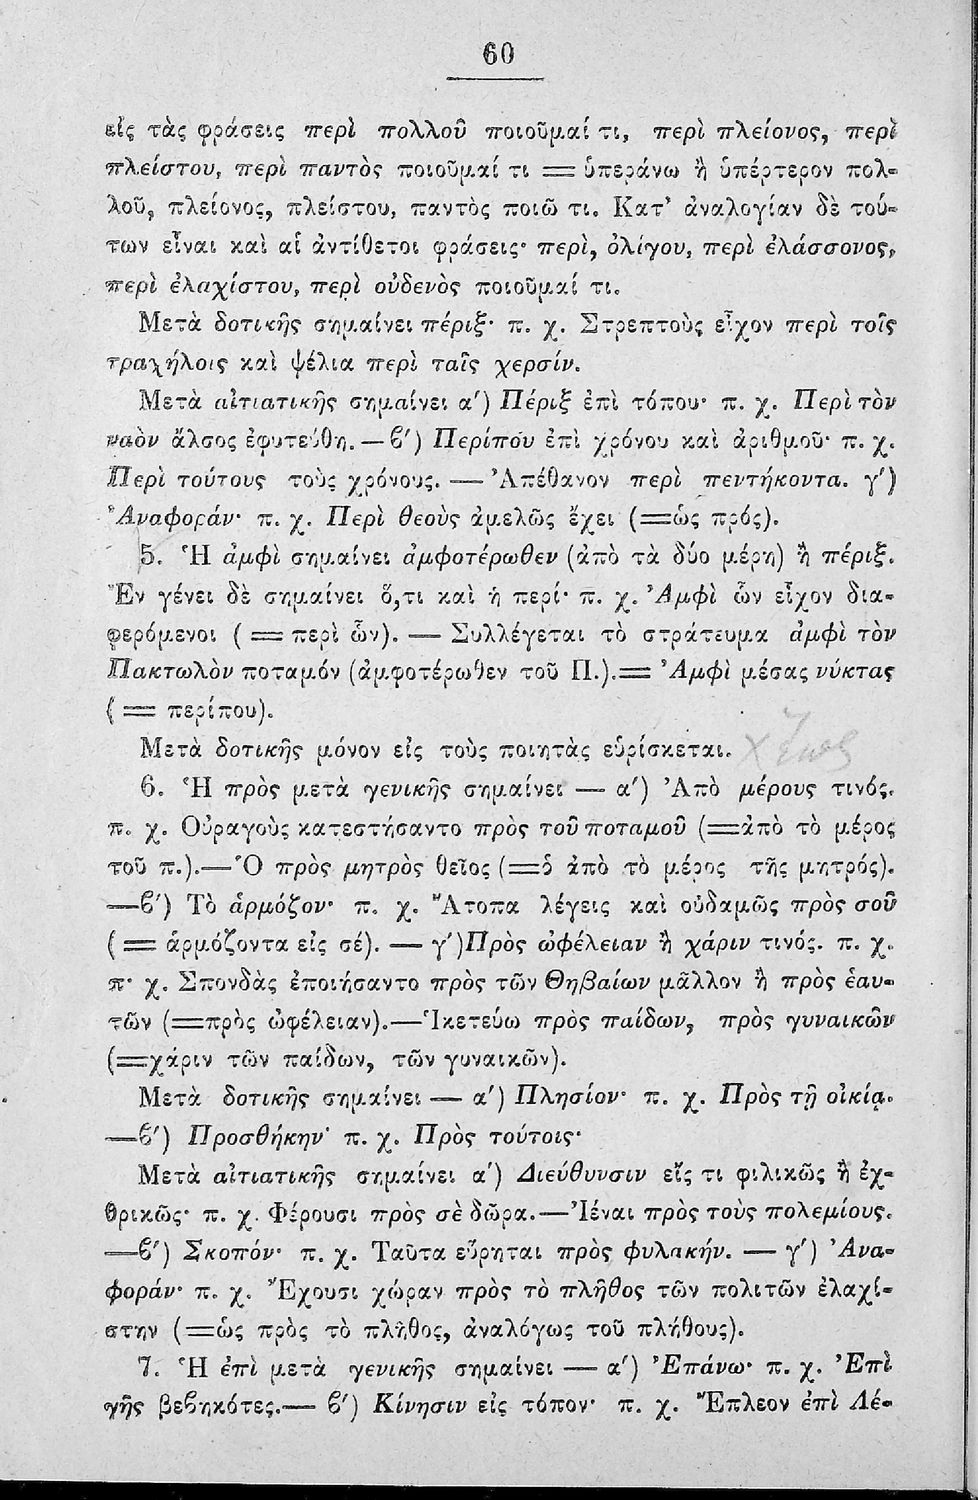 60
εἰς τὰς φράσεις περὶ πολλοῦ ποιοῦμαί τι, περὶ πλείονος, περὶ
πλείστου, περὶ παντὸς ποιοῦμαί τι = ὑπεράνω ἢ ὑπέρτερον πολ-
λοῦ, πλείονος, πλείστου, παντὸς ποιῶ τι. Κατ' ἀναλογίαν δὲ τού-
των εἶναι καὶ αἱ ἀντίθετοι φράσεις· περὶ, ὀλίγου, περὶ ἐλάσσονος,
περὶ ἐλαχίστου, περὶ οὐδενὸς ποιοῦμαί τι.
Μετὰ δοτικῆς σημαίνει πέριξ· π. χ. Στρεπτοὺς εἶχον περὶ τοῖς
τραχήλοις καὶ ψέλια περὶ ταῖς χερσίν.
Μετὰ αἰτιατικῆς σημαίνει α') Πέριξ ἐπὶ τόπου· π. χ. Περὶ τὸν
ναὸν ἄλσος ἐφυτεύθη. — ϐ') Περίπου ἐπὶ χρόνου καὶ ἀριθμοῦ· π. χ.
Περὶ τούτους τοὺς χρόνους. — Ἀπέθανον περὶ πεντήκοντα. γ')
Ἀναφοράν· π. χ. Περὶ θεοὺς ἀμελῶς ἔχει (=ὡς πρός).
5. Ἡ ἀμφὶ σημαίνει ἀμφοτέρωθεν (ἀπὸ τὰ δύο μέρη) ἢ πέριξ.
Ἐν γένει δὲ σημαίνει ὅ,τι καὶ ἡ περί· π. χ. Ἀμφὶ ὧν εἶχον δια-
φερόμενοι ( = περὶ ὧν). — Συλλέγεται τὸ στράτευμα ἀμφὶ τὸν
Πακτωλὸν ποταμόν (ἀμφοτέρωθεν τοῦ Π.).= Ἀμφὶ μέσας νύκτας
( = περίπου).
Μετὰ δοτικῆς μόνον εἰς τοὺς ποιητὰς εὑρίσκεται.
6. Ἡ πρὸς μετὰ γενικῆς σημαίνει — α') Ἀπὸ μέρους τινός.
π. χ. Οὐραγοὺς κατεστήσαντο πρὸς τοῦ ποταμοῦ (=ἀπὸ τὸ μέρος
τοῦ π.).—Ὁ πρὸς μητρὸς θεῖος (=ὁ ἀπὸ τὸ μέρος τῆς μητρός).
—ϐ') Τὸ ἁρμόζον· π. χ. Ἄτοπα λέγεις καὶ οὐδαμῶς πρὸς σοῦ
( = ἁρμόζοντα εἰς σέ). — γ')Πρὸς ὠφέλειαν ἢ χάριν τινός. π. χ.
π· χ. Σπονδὰς ἐποιήσαντο πρὸς τῶν Θηβαίων μᾶλλον ἢ πρὸς ἑαυ-
τῶν (=πρὸς ὠφέλειαν).—Ἱκετεύω πρὸς παίδων, πρὸς γυναικῶν
(=χάριν τῶν παίδων, τῶν γυναικῶν).
Μετὰ δοτικῆς σημαίνει — α') Πλησίον· π. χ. Πρὸς τῇ οἰκίᾳ.
—ϐ') Προσθήκην· π. χ. Πρὸς τούτοις·
Μετὰ αἰτιατικῆς σημαίνει α') Διεύθυνσιν εἴς τι φιλικῶς ἢ ἐχ-
θρικῶς· π. χ. Φέρουσι πρὸς σὲ δῶρα.—Ἰέναι πρὸς τοὺς πολεμίους.
—ϐ') Σκοπόν· π. χ. Ταῦτα εὕρηται πρὸς φυλακήν. — γ') Ἀνα-
φοράν· π. χ. Ἔχουσι χώραν πρὸς τὸ πλῆθος τῶν πολιτῶν ἐλαχί-
στην (=ὡς πρὸς τὸ πλῆθος, ἀναλόγως τοῦ πλήθους).
7. Ἡ ἐπὶ μετὰ γενικῆς σημαίνει — α') Ἐπάνω· π. χ. Ἐπὶ
γῆς βεϐηκότες.— ϐ') Κίνησιν εἰς τόπον· π. χ. Ἔπλεον ἐπὶ Λέ-